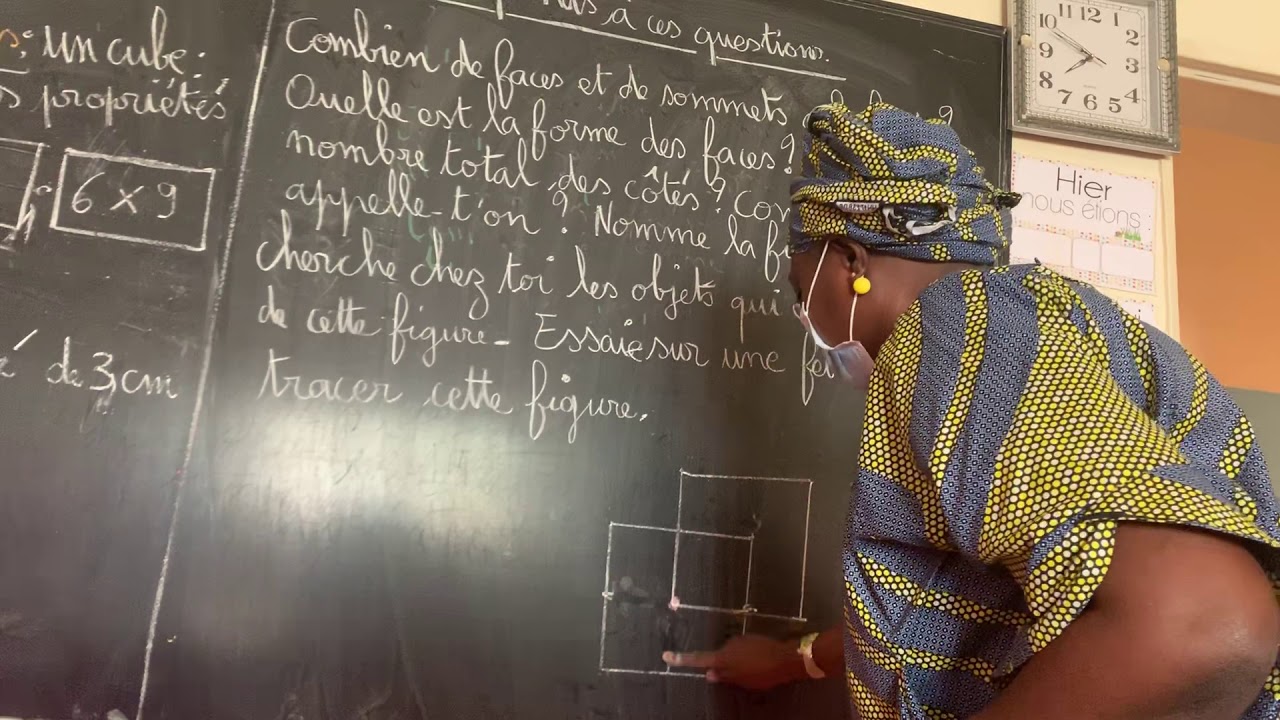 à ces questions.
: un cube.
propriétés
6 x 9
de 3 cm
Combien de faces et de sommets
Quelle est la forme des faces?
nombre total des côtés? Com
appelle-t'on? Nomme la fi
cherche chez toi les objets qui
de cette figure - Essaie sur une feu
tracer cette figure.
11 12 1
10 2
9 3
8 4
7 6 5
Hier
nous étions